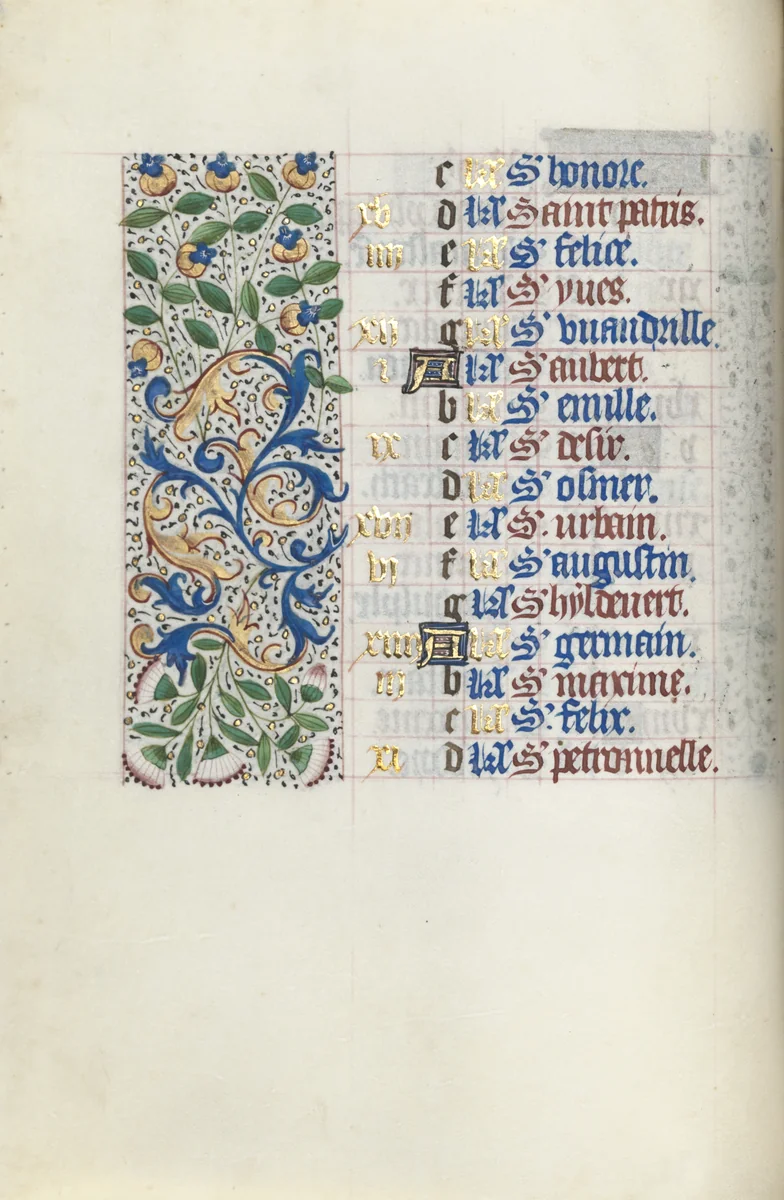 c S' honore.
xv d Saint patris.
iiii e S' felice.
f S' yues.
xii g S' vuandrille.
i A S' aubert.
b S' emille.
ix c S' desir.
d S' osmer.
xvii e S'. urbain.
vi f S' augustin.
g S' hyldeuert.
xiiii A S' germain.
iii b S' maxime.
c S'. felix.
xi d S' petronnelle.